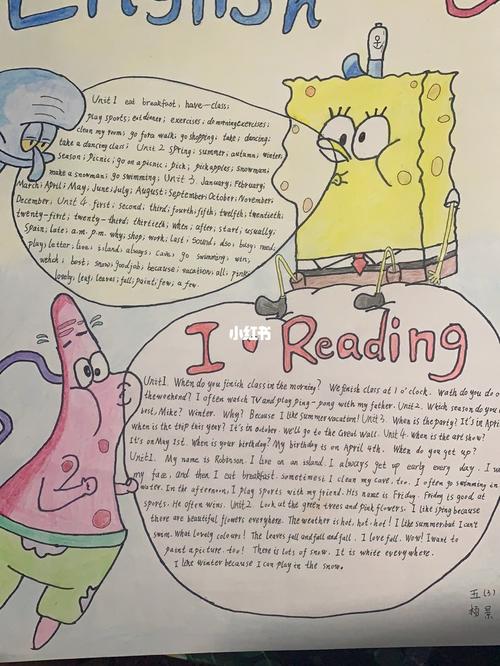 English
Unit 1 eat breakfast; have—class;
play sports; eat dinner; exercises; do morning exercises;
clean my room; go for a walk; go shopping; take; dancing;
take a dancing class; Unit 2 spring; summer; autumn; winter;
season; Picnic; go on a picnic; pick; pick apples; snowman;
make a snowman; go swimming; Unit 3 January; February;
March; April; May; June; July; August; September; October; November;
December; Unit 4 first; second; third; fourth; fifth; twelfth; twentieth;
twenty-first; twenty-third; thirtieth; when; after; start; usually;
Spain; late; a.m. p.m. why; shop; work; last; sound; also; busy; need;
play; letter; live; island; always; cave; go swimming; win;
which; best; snow; good job; because; vacation; all; pink;
lovely; leaf; leaves; fall; paint; few; a few.
小红书
I Reading
Unit1. When do you finish class in the morning? We finish class at 1 o'clock. Wath do you do on
the weekend? I often watch TV and play ping-pong with my father. Unit2. Which season do you
best, Mike? Winter. Why? Because I like summer vacation! Unit 3. When is the party? It's in April
when is the trip this year? It's in october. We'll go to the Great Wall. Unit 4. when is the art show?
It's on May 1st. When is your birthday? My birthday is on April 4th. When do you get up?
Unit1. My name is Robinson. I live on an island. I always get up early every day. I
my face, and then I eat breakfast. sometimes I clean my cave, too. I often go swimming in
water. In the afternoon, I play sports with my friend. His name is Friday. Friday is good at
sports. He often wins. Unit2. Look at the green trees and pink flowers. I like spring because
there are beautiful flowers everywhere. The weather is hot, hot, hot! I like summer but I can't
swim. What lovely colours! The leaves fall and fall and fall. I love fall. Wow! I want to
paint a picture, too! There is lots of snow. It is white everywhere.
I like winter because I can play in the snow.
五(3)